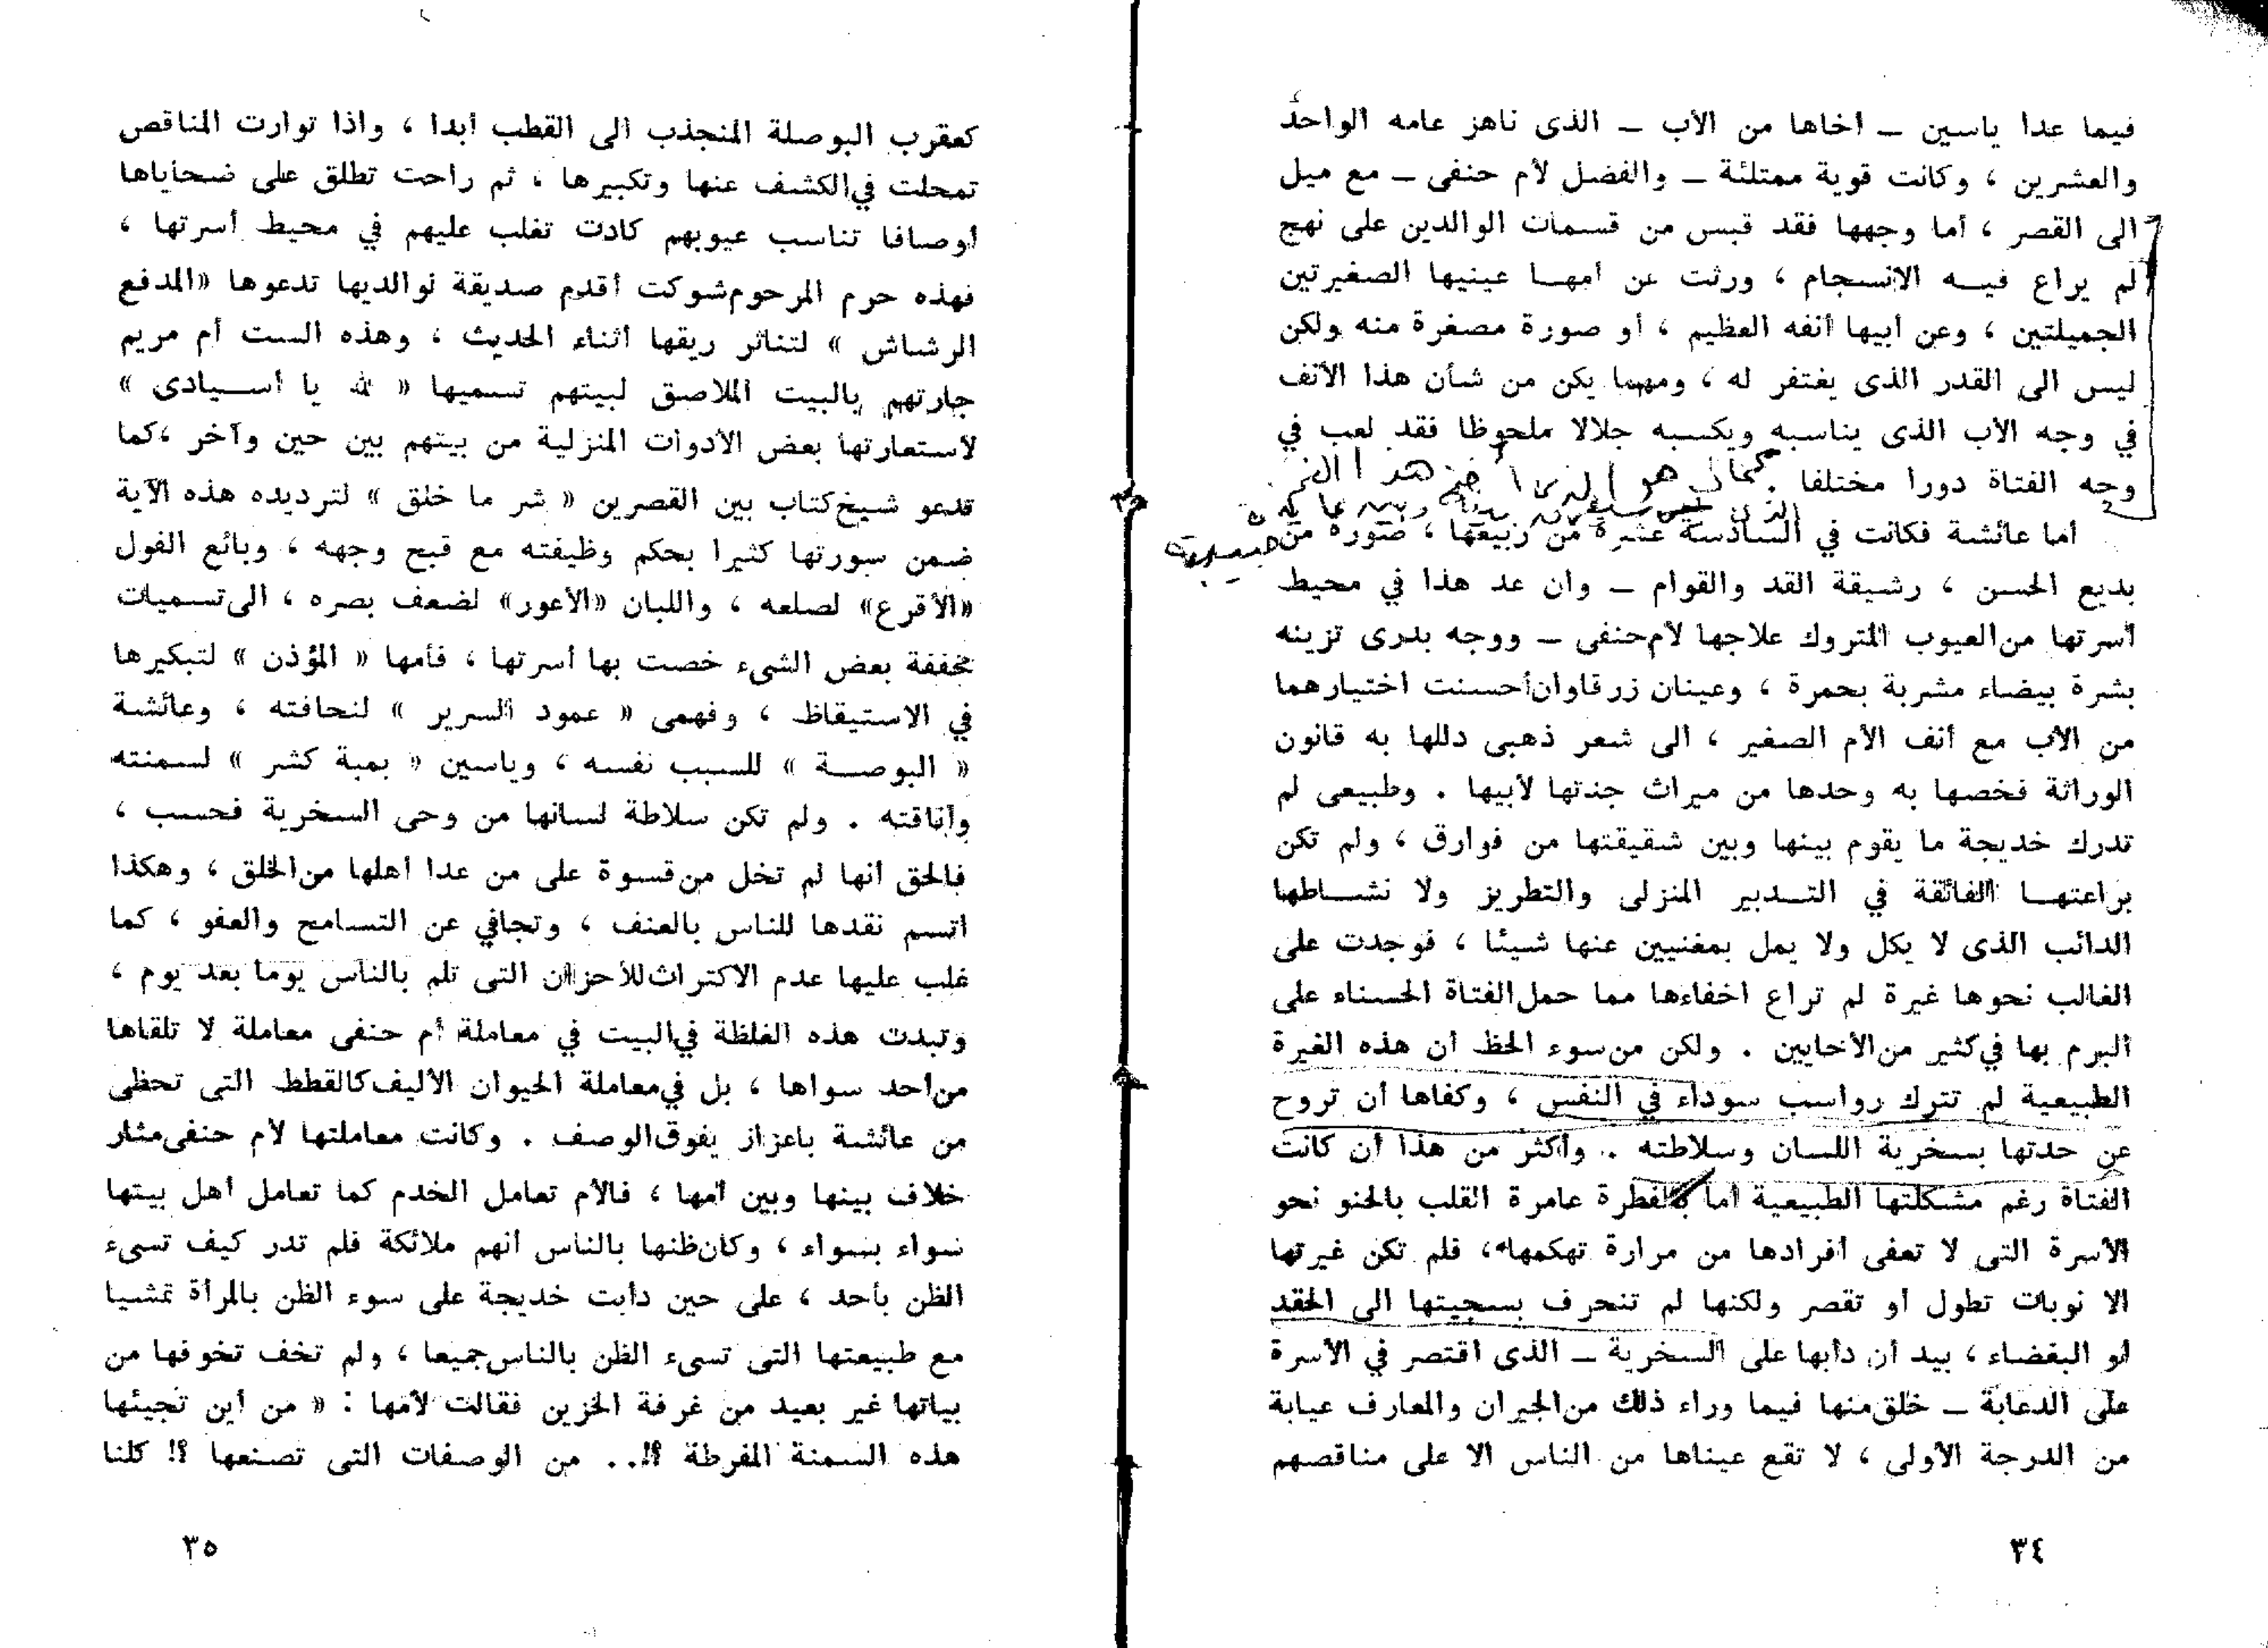 فيما عدا ياسين ـ أخاها من الأب ـ الذى ناهز عامه الواحد
والعشرين ، وكانت قوية ممتلئة ـ والفضل لأم حنفى ـ مع ميل
الى القصر ، أما وجهها فقد قبس من قسمات الوالدين على نهج
لم يراع فيه الانسجام ، ورثت عن أمها عينيها الصغيرتين
الجميلتين ، وعن أبيها أنفه العظيم ، أو صورة مصغرة منه ولكن
ليس الى القدر الذى يغتفر له ، ومهما يكن من شأن هذا الأنف
في وجه الأب الذى يناسبه ويكسبه جلالا ملحوظا فقد لعب في
وجه الفتاة دورا مختلفا .
كمال هو
أما عائشة فكانت في السادسة عشرة من ربيعها ، صورة من
بديع الحسن ، رشيقة القد والقوام ـ وان عد هذا في محيط
أسرتها من العيوب المتروك علاجها لأم حنفى ـ ووجه بدرى تزينه
بشرة بيضاء مشربة بحمرة ، وعينان زرقاوان أحسنت اختيارهما
من الأب مع أنف الأم الصغير ، الى شعر ذهبى دللها به قانون
الوراثة فخصها به وحدها من ميراث جدتها لأبيها . وطبيعى لم
تدرك خديجة ما يقوم بينها وبين شقيقتها من فوارق ، ولم تكن
براعتها الفائقة في التدبير المنزلى والتطريز ولا نشاطها
الدائب الذى لا يكل ولا يمل بمغنيين عنها شيئا ، فوجدت على
الغالب نحوها غيرة لم تراع اخفاءها مما حمل الفتاة الحسناء على
البرم بها في كثير من الأحايين . ولكن من سوء الحظ أن هذه الغيرة
الطبيعية لم تترك رواسب سوداء في النفس ، وكفاها أن تروح
عن حدتها بسخرية اللسان وسلاطته . وأكثر من هذا أن كانت
الفتاة رغم مشكلتها الطبيعية أما بالفطرة عامرة القلب بالحنو نحو
الأسرة التى لا تعفى أفرادها من مرارة تهكمها ، فلم تكن غيرتها
الا نوبات تطول أو تقصر ولكنها لم تنحرف بسجيتها الى الحقد
أو البغضاء ، بيد أن دأبها على السخرية ـ الذى اقتصر في الأسرة
على الدعابة ـ خلق منها فيما وراء ذلك من الجيران والمعارف عيابة
من الدرجة الأولى ، لا تقع عيناها من الناس الا على مناقصهم
٣٤
كعقرب البوصلة المنجذب الى القطب أبدا ، واذا توارت المناقص
تمحلت في الكشف عنها وتكبيرها ، ثم راحت تطلق على ضحاياها
أوصافا تناسب عيوبهم كادت تغلب عليهم في محيط أسرتها ،
فهذه حرم المرحوم شوكت أقدم صديقة لوالديها تدعوها «المدفع
الرشاش » لتناثر ريقها أثناء الحديث ، وهذه الست أم مريم
جارتهم بالبيت الملاصق لبيتهم تسميها « لله يا أسيادى »
لاستعارتها بعض الأدوات المنزلية من بيتهم بين حين وآخر ، كما
تدعو شيخ كتاب بين القصرين « شر ما خلق » لترديده هذه الآية
ضمن سورتها كثيرا بحكم وظيفته مع قبح وجهه ، وبائع الفول
«الأقرع» لصلعه ، واللبان «الأعور» لضعف بصره ، الى تسميات
مخففة بعض الشىء خصت بها أسرتها ، فأمها « المؤذن » لتبكيرها
في الاستيقاظ ، وفهمى « عمود السرير » لنحافته ، وعائشة
« البوصة » للسبب نفسه ، وياسين « بمبة كشر » لسمنته
وأناقته . ولم تكن سلاطة لسانها من وحى السخرية فحسب ،
فالحق أنها لم تخل من قسوة على من عدا أهلها من الخلق ، وهكذا
اتسم نقدها للناس بالعنف ، وتجافي عن التسامح والعفو ، كما
غلب عليها عدم الاكتراث للأحزان التى تلم بالناس يوما بعد يوم ،
وتبدت هذه الغلظة في البيت في معاملة أم حنفى معاملة لا تلقاها
من أحد سواها ، بل في معاملة الحيوان الأليف كالقطط التى تحظى
من عائشة باعزاز يفوق الوصف . وكانت معاملتها لأم حنفى مثار
خلاف بينها وبين أمها ، فالأم تعامل الخدم كما تعامل أهل بيتها
سواء بسواء ، وكان ظنها بالناس أنهم ملائكة فلم تدر كيف تسىء
الظن بأحد ، على حين دأبت خديجة على سوء الظن بالمرأة تمشيا
مع طبيعتها التى تسىء الظن بالناس جميعا ، ولم تخف تخوفها من
بياتها غير بعيد من غرفة الخزين فقالت لأمها : « من أين تجيئها
هذه السمنة المفرطة ؟!.. من الوصفات التى تصنعها ؟! كلنا
٣٥